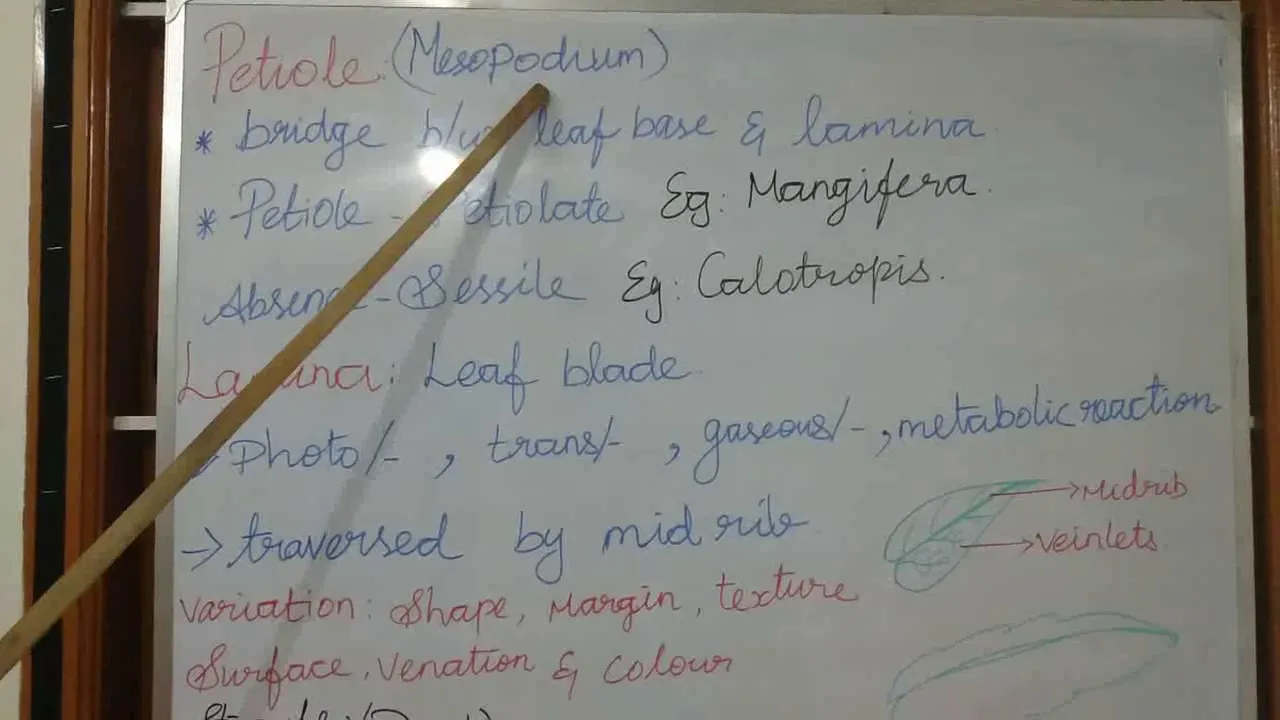 Petiole: (Mesopodium)
* bridge b/w leaf base & lamina
* Petiole - Petiolate Eg: Mangifera.
Absence - Sessile Eg: Calotropis.
Lamina: Leaf blade.
→ Photo/- , trans/- , gaseous/- , metabolic reaction
→ traversed by mid rib
→ Midrib
→ Veinlets
Variation: Shape, Margin, texture
Surface, Venation & colour